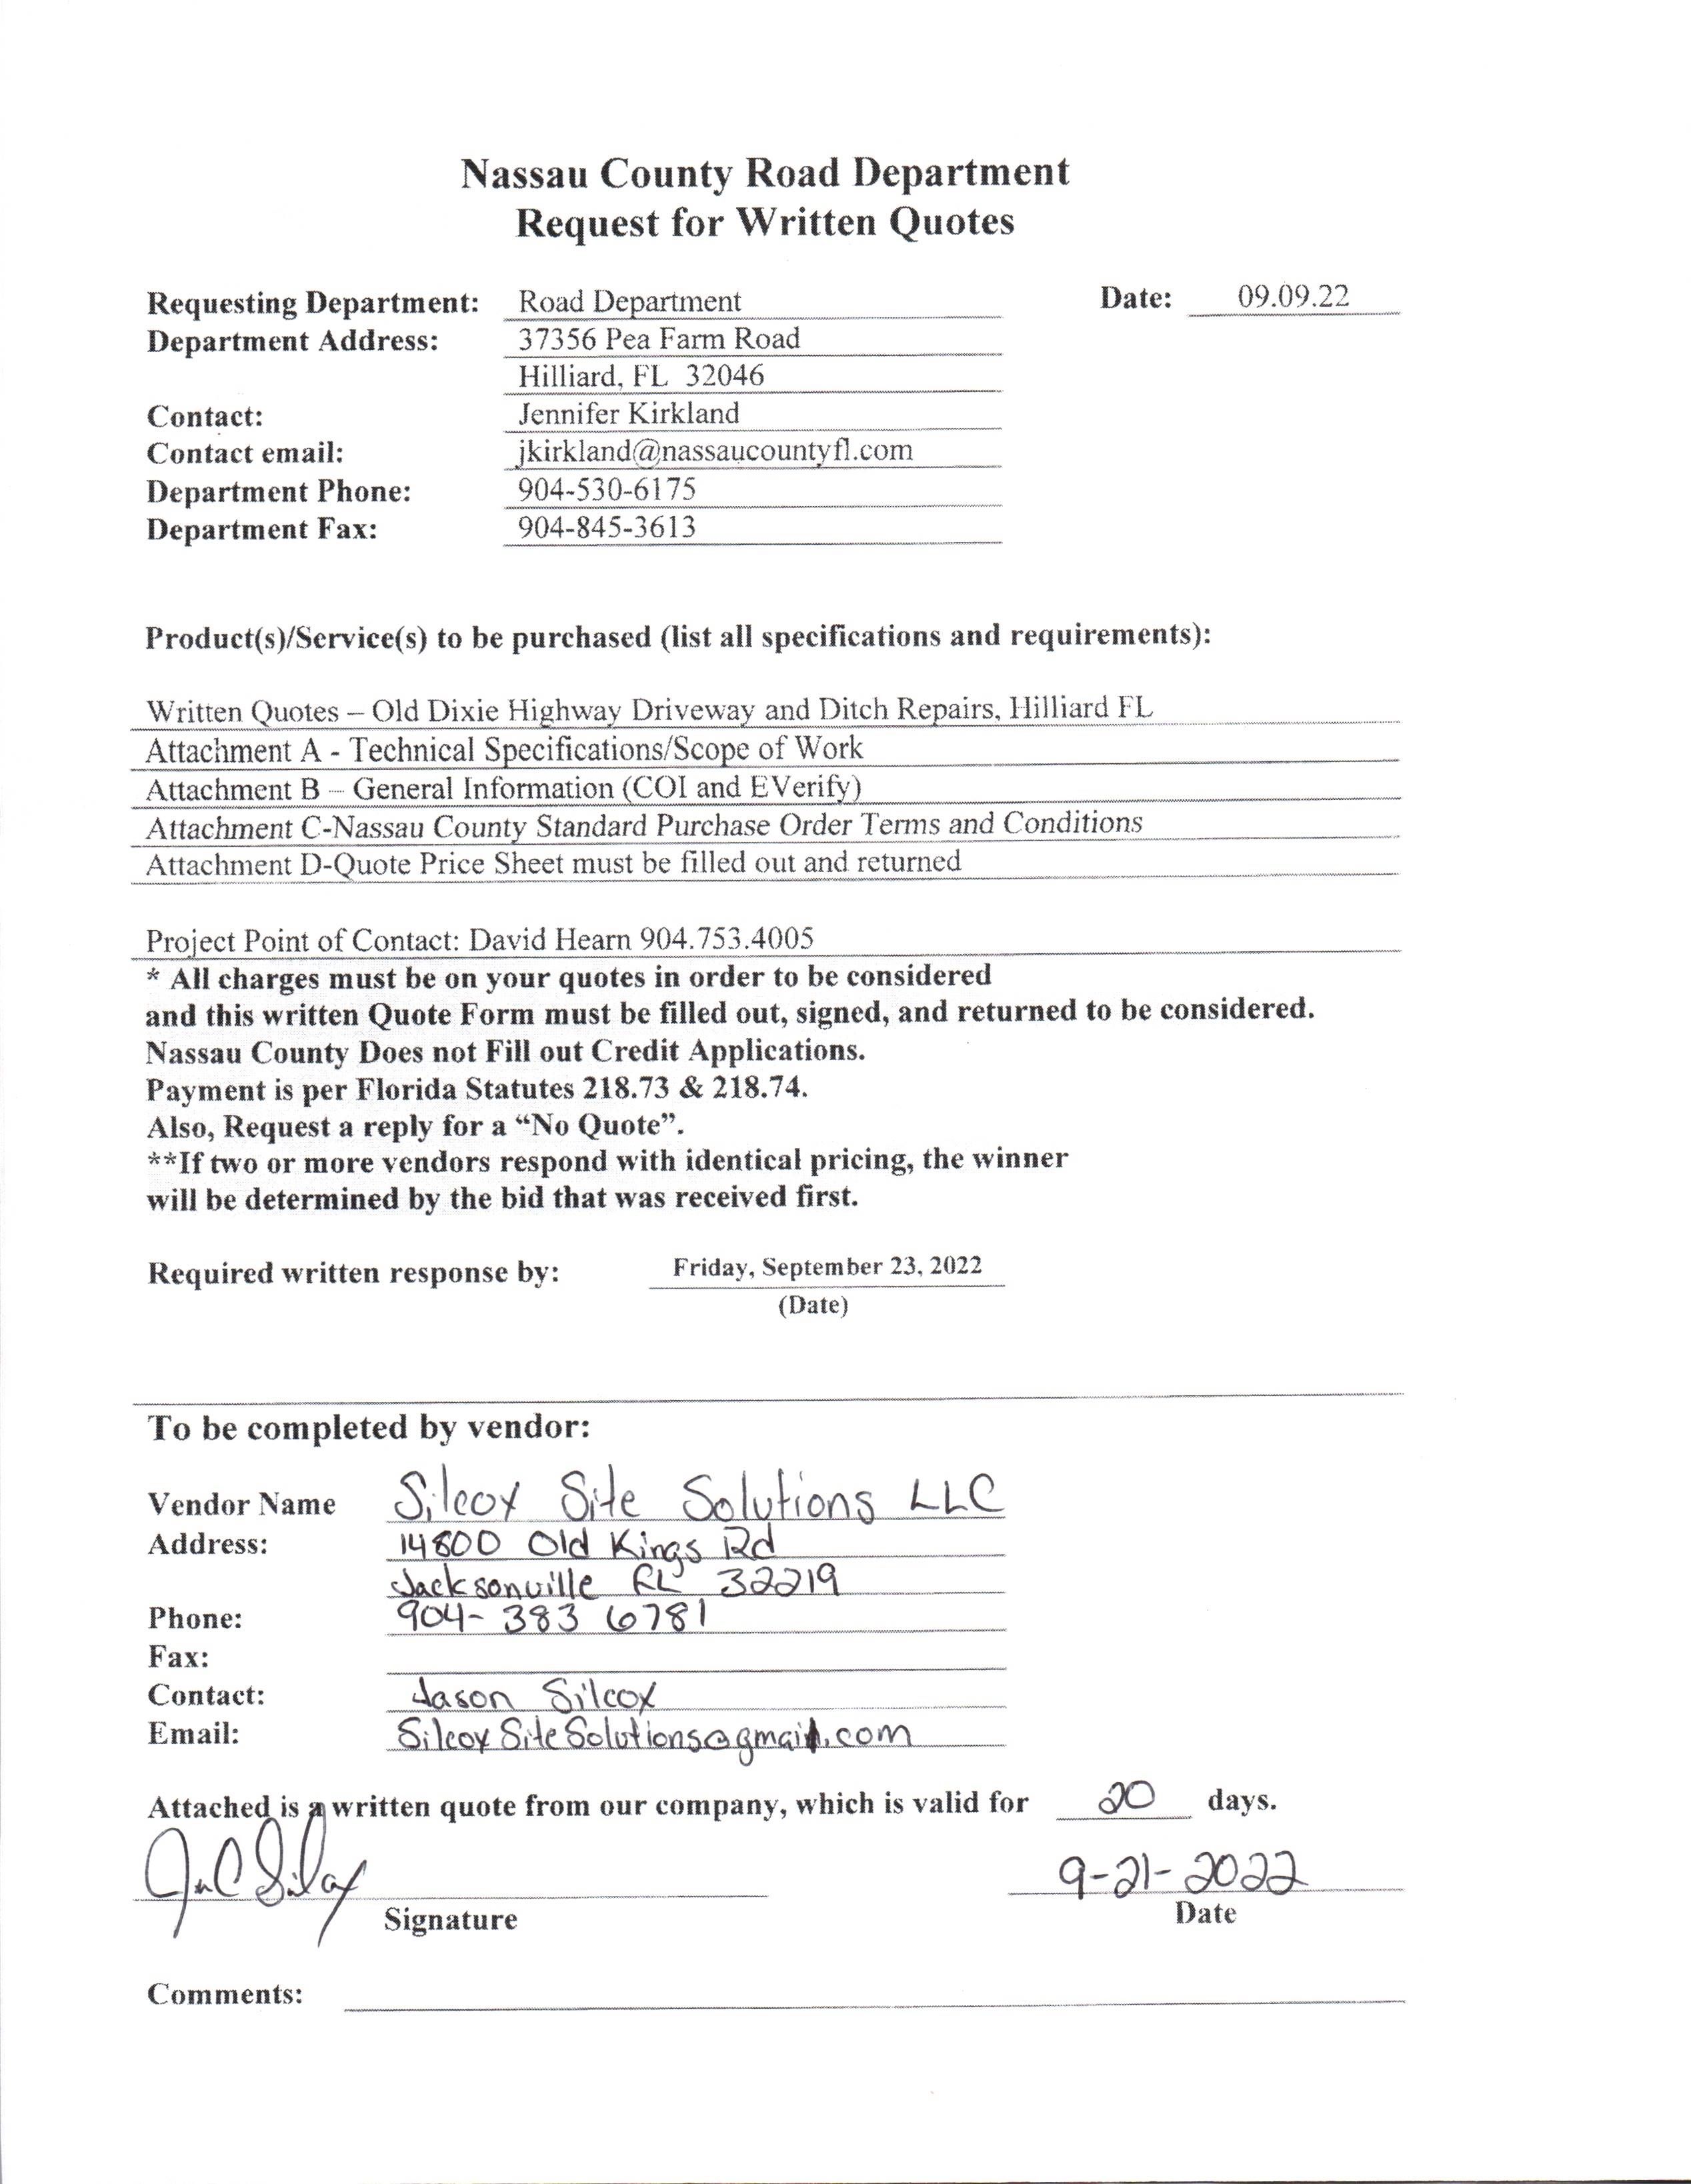 Nassau County Road Department
Request for Written Quotes
Requesting Department: Road Department Date: 09.09.22
Department Address: 37356 Pea Farm Road
Hilliard, FL 32046
Contact: Jennifer Kirkland
Contact email: jkirkland@nassaucountyfl.com
Department Phone: 904-530-6175
Department Fax: 904-845-3613
Product(s)/Service(s) to be purchased (list all specifications and requirements):
Written Quotes – Old Dixie Highway Driveway and Ditch Repairs, Hilliard FL
Attachment A - Technical Specifications/Scope of Work
Attachment B – General Information (COI and EVerify)
Attachment C-Nassau County Standard Purchase Order Terms and Conditions
Attachment D-Quote Price Sheet must be filled out and returned
Project Point of Contact: David Hearn 904.753.4005
* All charges must be on your quotes in order to be considered
and this written Quote Form must be filled out, signed, and returned to be considered.
Nassau County Does not Fill out Credit Applications.
Payment is per Florida Statutes 218.73 & 218.74.
Also, Request a reply for a “No Quote”.
**If two or more vendors respond with identical pricing, the winner
will be determined by the bid that was received first.
Required written response by: Friday, September 23, 2022
(Date)
To be completed by vendor:
Vendor Name Silcox Site Solutions LLC
Address: 14800 Old Kings Rd
Jacksonville FL 32219
Phone: 904-383 6781
Fax:
Contact: Jason Silcox
Email: SilcoxSiteSolutions@gmail.com
Attached is a written quote from our company, which is valid for 20 days.
9-21-2022
Signature Date
Comments: